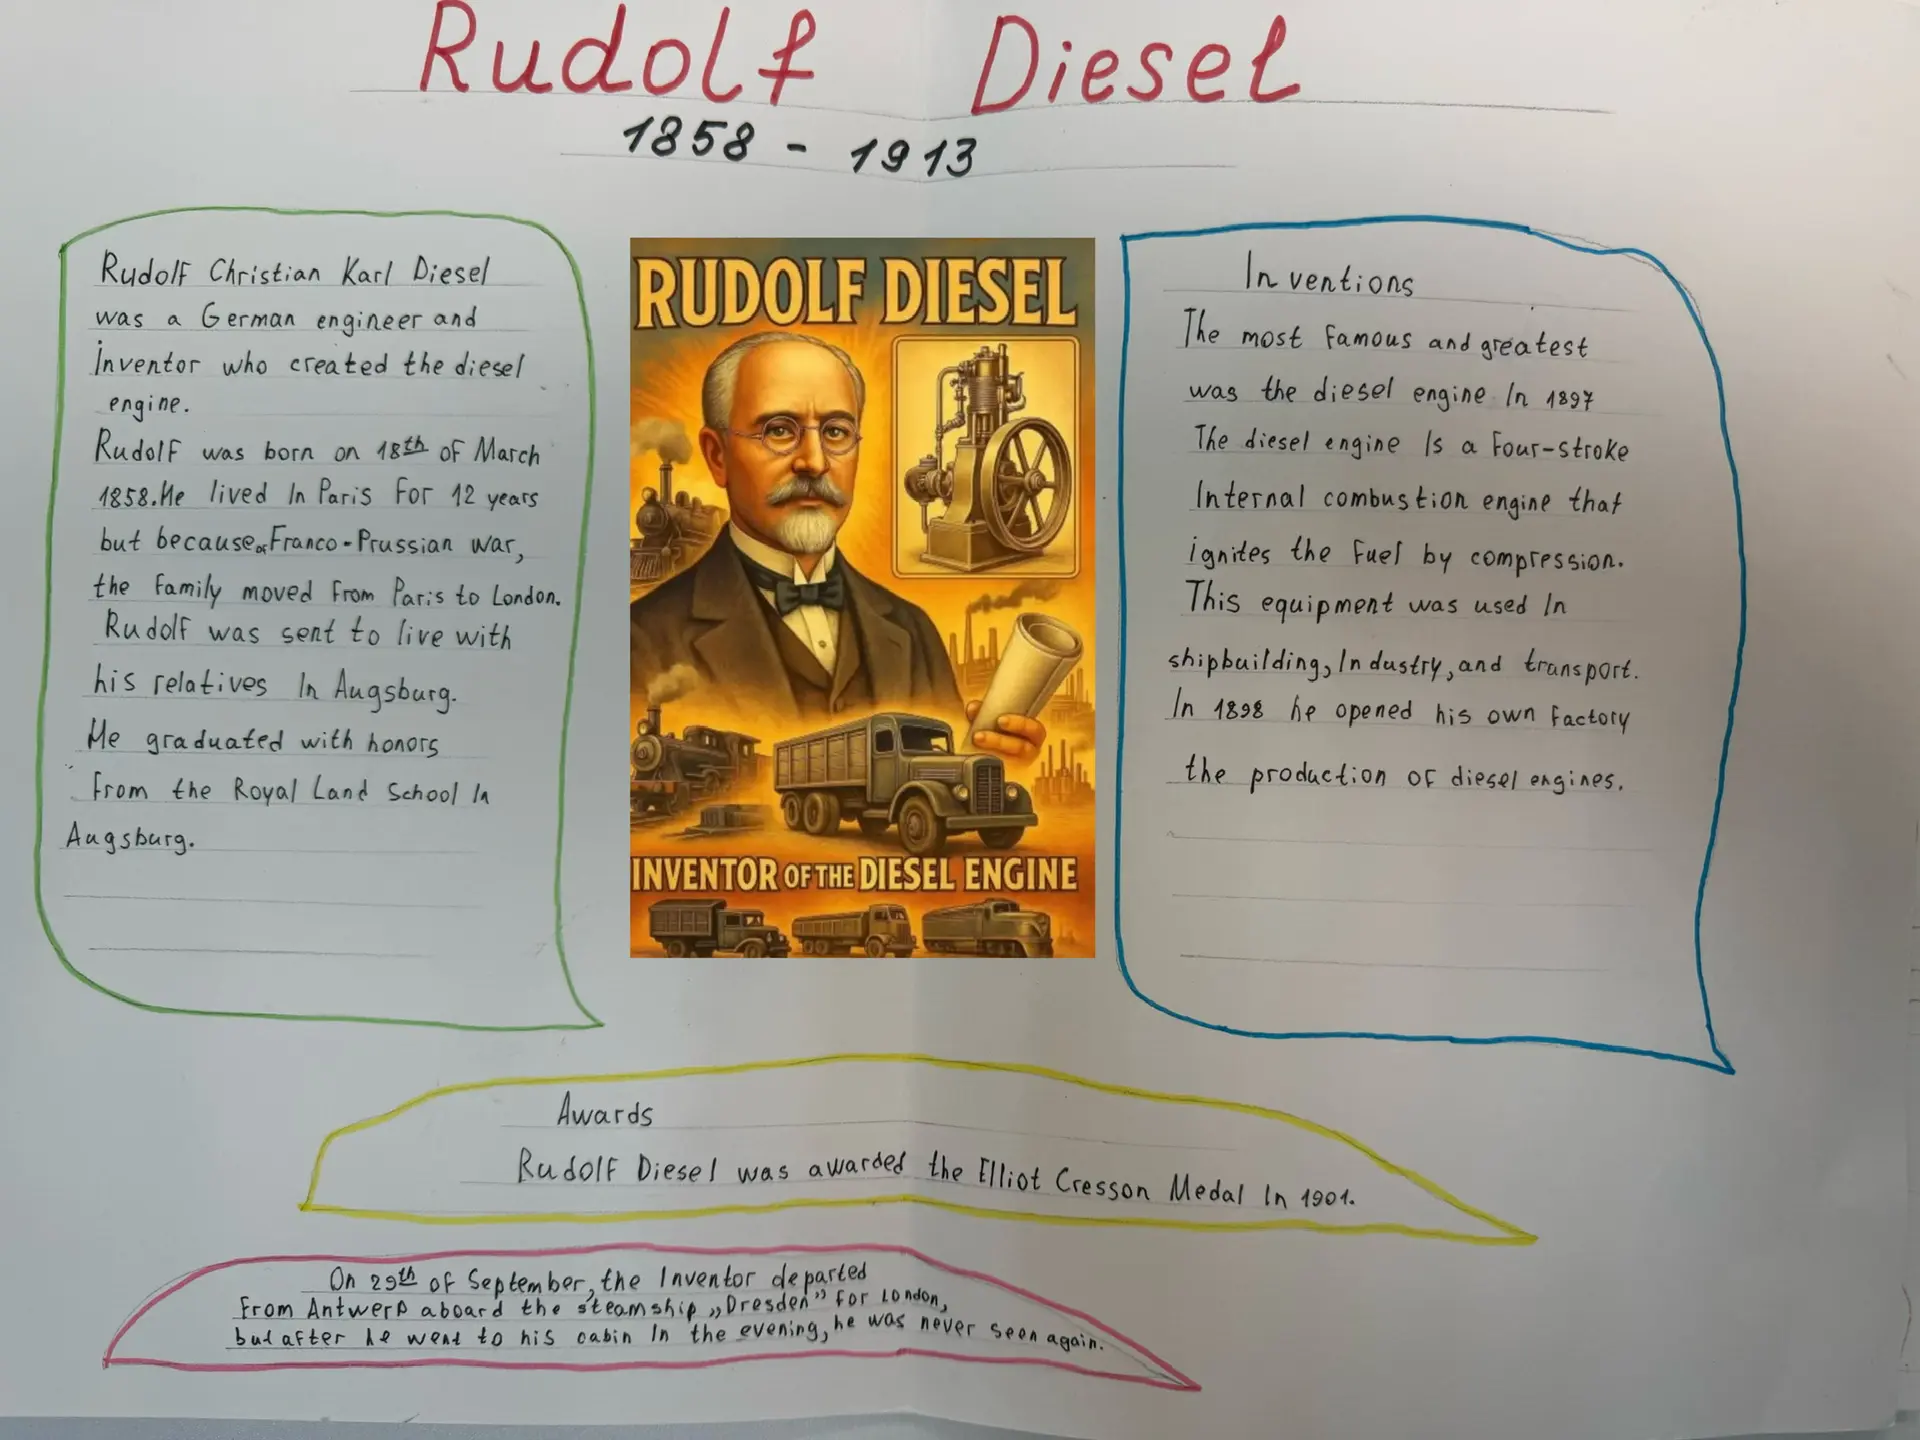 Rudolf Diesel
1858 - 1913
Rudolf Christian Karl Diesel
was a German engineer and
inventor who created the diesel
engine.
Rudolf was born on 18th of March
1858. He lived In Paris for 12 years
but because of Franco-Prussian war,
the family moved from Paris to London.
Rudolf was sent to live with
his relatives In Augsburg.
He graduated with honors
from the Royal Land School In
Augsburg.
RUDOLF DIESEL
INVENTOR OF THE DIESEL ENGINE
Inventions
The most famous and greatest
was the diesel engine In 1897
The diesel engine Is a four-stroke
Internal combustion engine that
ignites the fuel by compression.
This equipment was used In
shipbuilding, Industry, and transport.
In 1898 he opened his own factory
the production of diesel engines.
Awards
Rudolf Diesel was awarded the Elliot Cresson Medal In 1901.
On 29th of September, the Inventor departed
from Antwerp aboard the steamship „Dresden” for London,
but after he went to his cabin In the evening, he was never seen again.